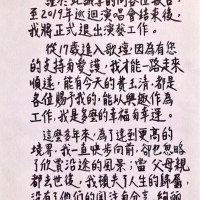 至2019年巡迴演唱會結束後,
我將正式退出演藝工作。
從17歲進入歌壇,因為有您
的支持與愛護,我才能一路走來
順遂,能有今天的費玉清,都是
各位賜予我的,能以興趣作為
工作,我是多麼的幸福與幸運。
這麼多年來,為了達到更高的
境界,我一直快步向前,卻也忽略
了欣賞沿途的風景;當 父母親
都去世後,我頓失了人生的歸屬,
沒有了他們的關注與分享,絢麗